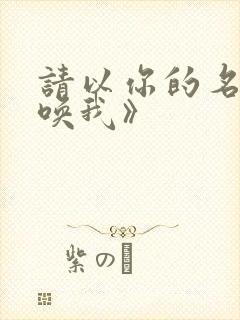 請以你的名
喚我》
紫の